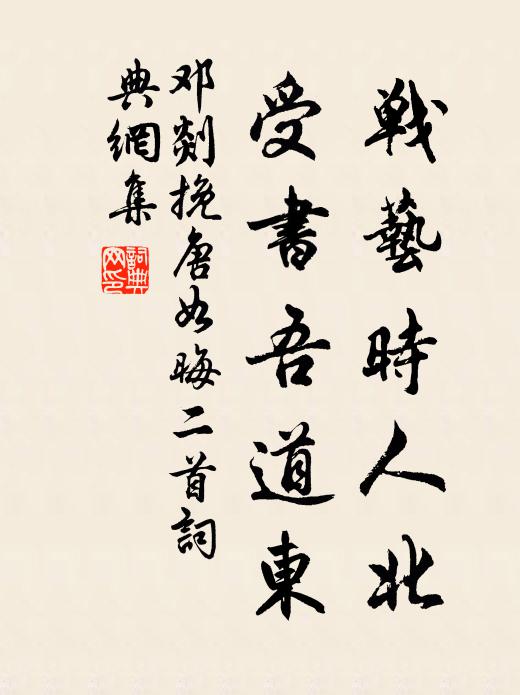 戰藝時人北
受書吾道東
邓剡挽唐如晦二首詞
典網集
詞典网印